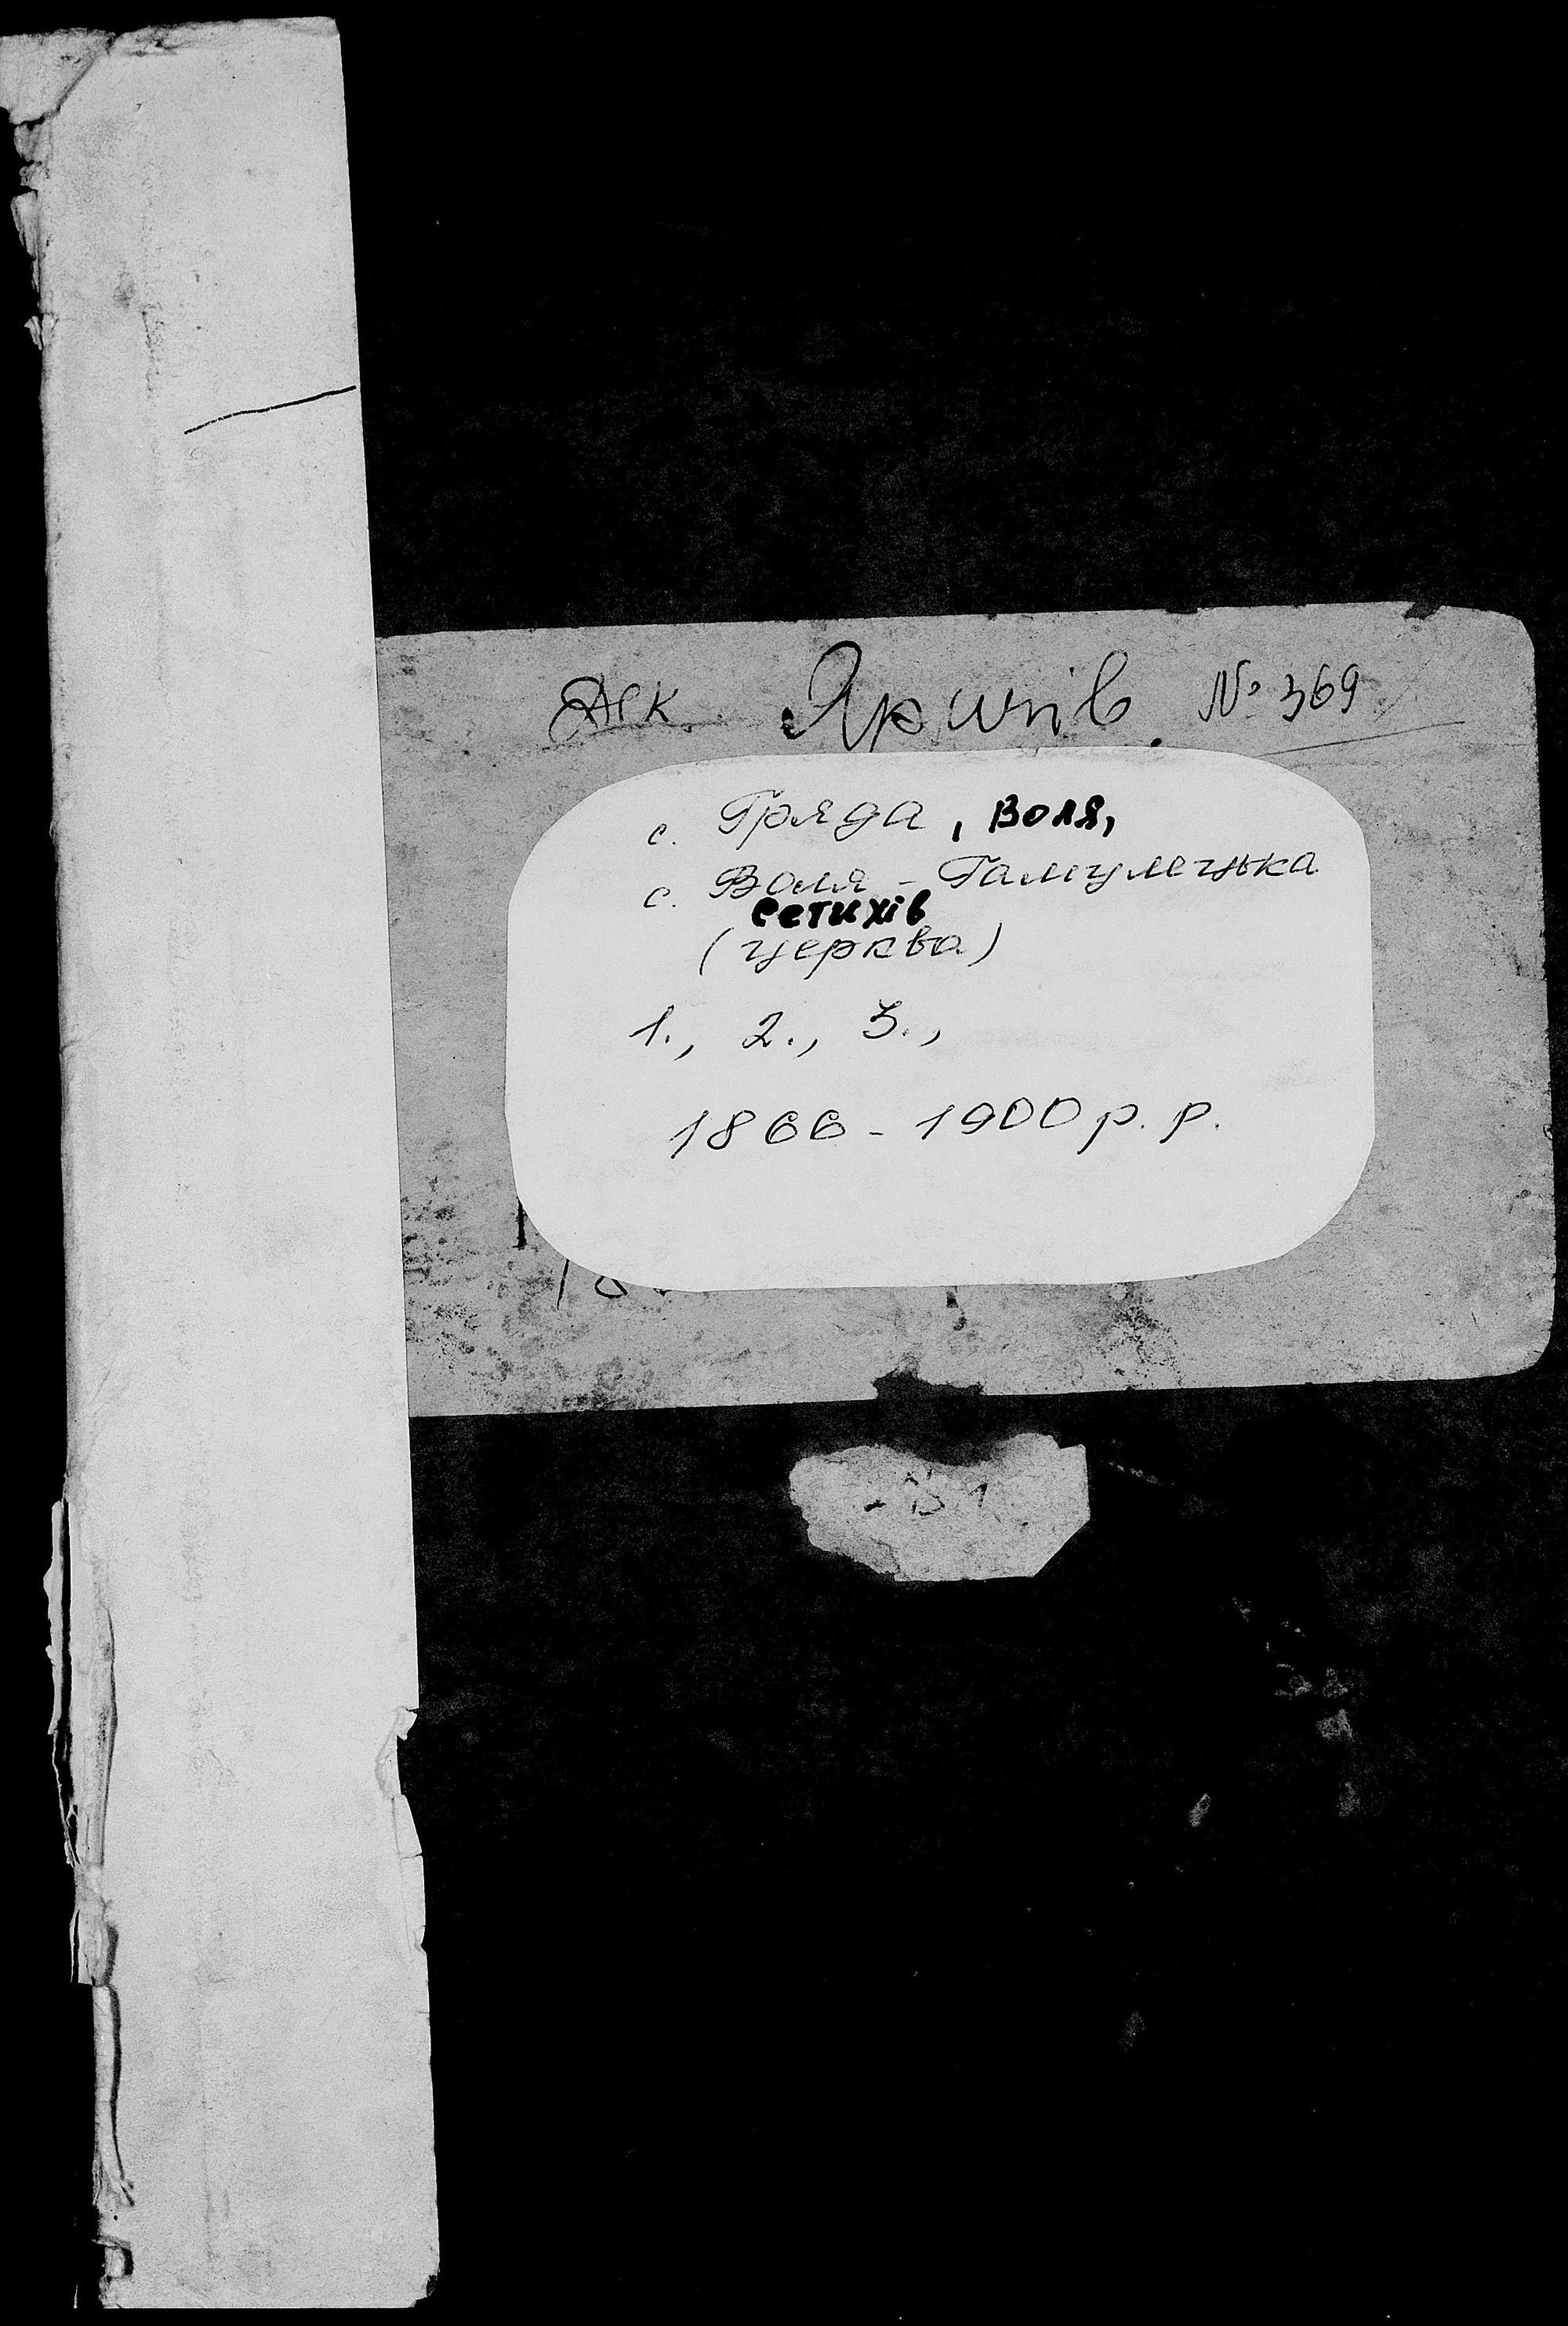 Яричів № 369
с. Гряда, Воля,
с. Воля - Гамулецька
Сетихів
(церква)
1., 2., 3.,
1866 - 1900 р. р.